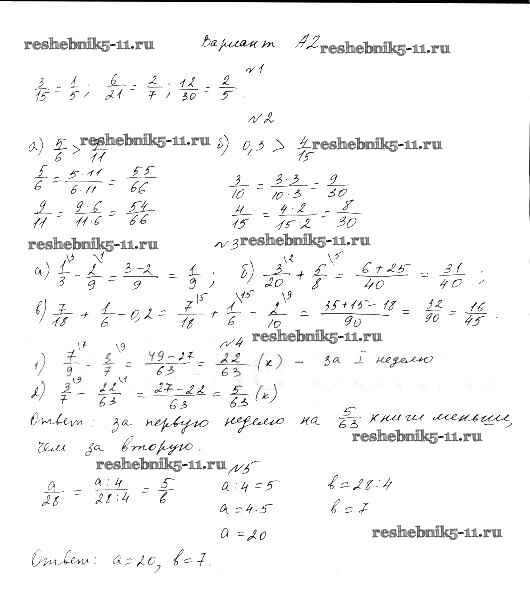 reshebnik5-11.ru Вариант А2 reshebnik5-11.ru
№1
3/15 = 1/5; 6/21 = 2/7; 12/30 = 2/5.
№2
а) 5/6 > 9/11 reshebnik5-11.ru б) 0,3 > 4/15 reshebnik5-11.ru
5/6 = 5·11/6·11 = 55/66
3/10 = 3·3/10·3 = 9/30
9/11 = 9·6/11·6 = 54/66
4/15 = 4·2/15·2 = 8/30
reshebnik5-11.ru №3 reshebnik5-11.ru
а) 1/3 \3 - 2/9 \1 = 3-2/9 = 1/9; б) 3/20 \2 + 5/8 \5 = 6+25/40 = 31/40;
в) 7/18 + 1/6 - 0,2 = 7/18 \5 + 1/6 \15 - 2/10 \9 = 35+15-18/90 = 32/90 = 16/45.
№4 reshebnik5-11.ru
1) 7/9 \7 - 3/7 \9 = 49-27/63 = 22/63 (к) - за I неделю
2) 3/7 \9 - 22/63 \1 = 27-22/63 = 5/63 (к)
Ответ: за первую неделю на 5/63 книги меньше,
чем за вторую. reshebnik5-11.ru
reshebnik5-11.ru №5
a/28 = a:4/28:4 = 5/в a:4=5 в=28:4
a=4·5 в=7
a=20 reshebnik5-11.ru
Ответ: a=20, в=7.